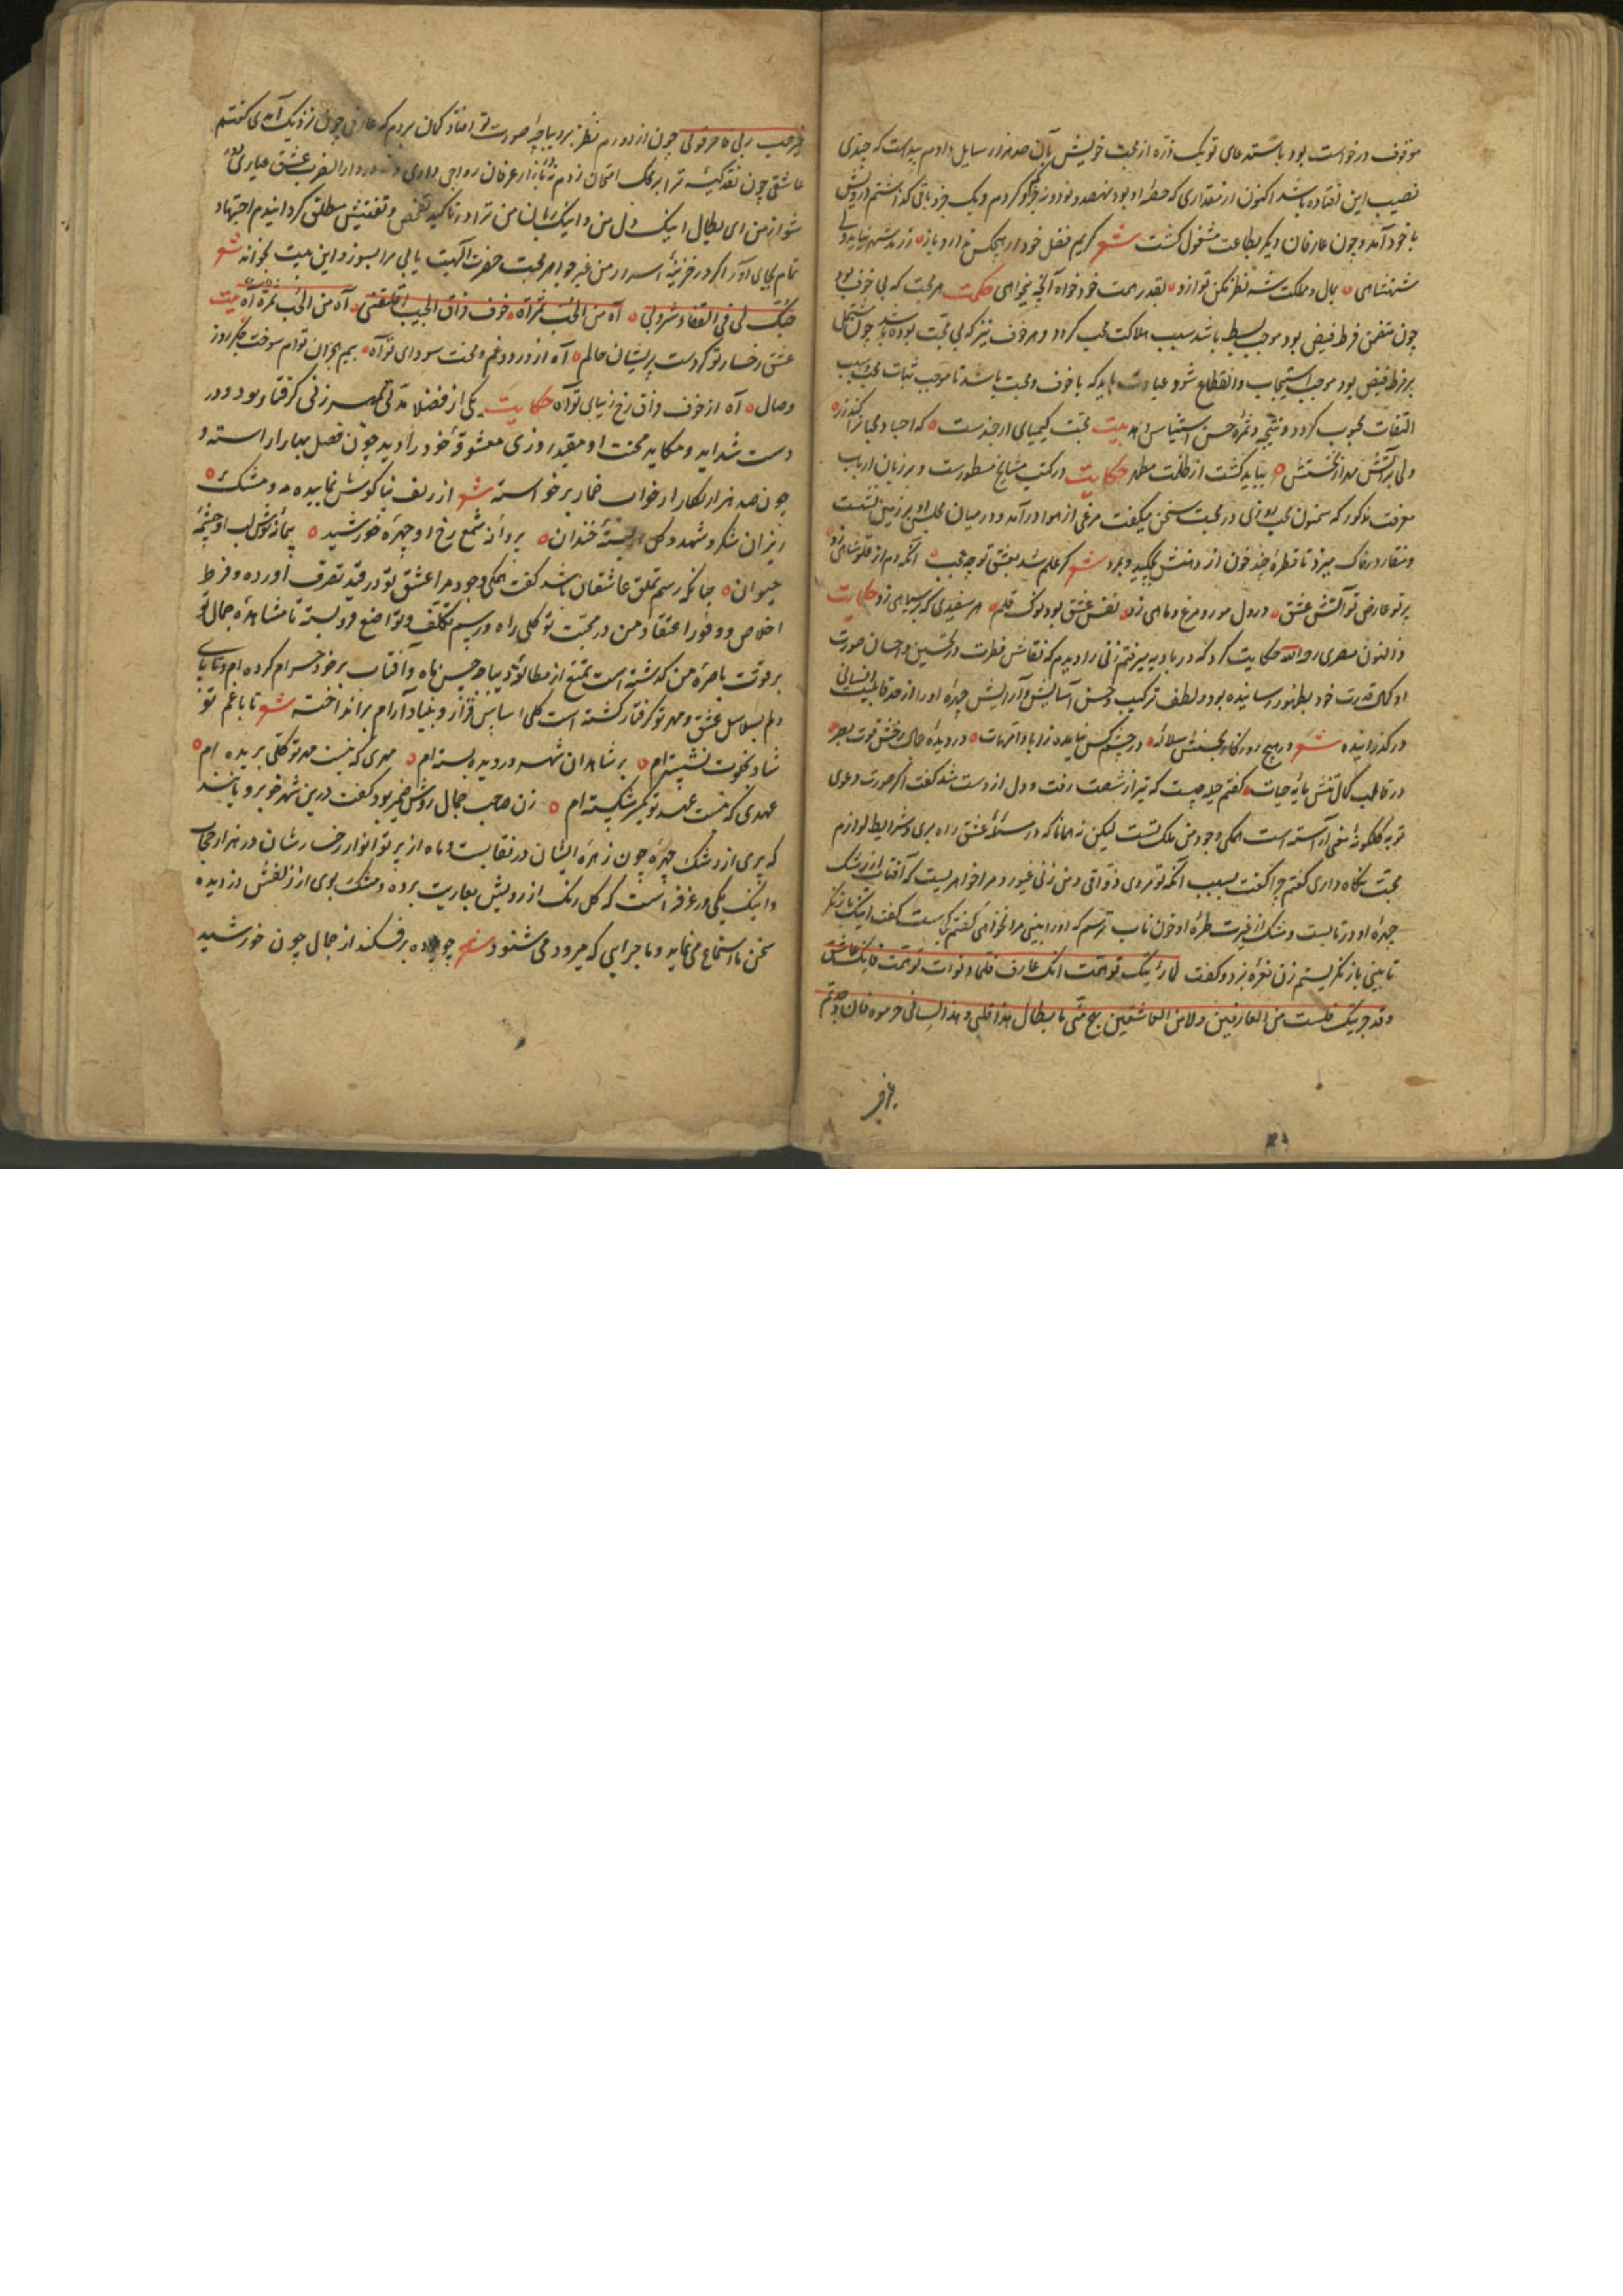 موقوف درخواست بود بایستدعای تو یک ذره از محبت خویش بآن صد هزار سایل دادم پیداست که چندی
نصیب این افتاده باشد اکنون از مقداری که حصهٔ او بود نهصد و نود و نه جزو کم کردم و یک جزو باقی گذاشتم درویش
با خود آمد و چون عارفان دیگر بطاعت مشغول گشت شعر کریم فضل خود از هیچکس ندارد باز
شهنشاهی بمال و مملکت شه نظر مکن تو ازو بقدر همت خود خواه آنچه میخواهی حکمت هر محبت که بی خوف بود
چون متضمن فرط فیض بود موجب بسط باشد سبب هلاکت محب گردد و هر خوف نیز که بی محبت بوده باشد چون مشتمل
بر فرط قبض بود موجب استیجاب و انقطاع شود عبادت باید که با خوف و محبت باشد تا موجب ثبات محب سبب
التفات محبوب گردد و نتیجه و ثمرهٔ حسن استیناس دهد بیت محبت کیمیای ارجمندست که
ولی بر آتش مهر از نخستش بباید گشت از ظلمت مطهر حکایت در کتب مشایخ مسطورست و بر زبان ارباب
معرفت مذکور که سمنون محب روزی در محبت سخن میگفت مرغی از هوا درآمد و در میان مجلس او بر زمین نشست
و منقار در خاک میزد تا قطرهٔ چند خون از دهنش بچکید و بمرد شعر گر علم شد بعشق تو چه عجب آنکه دم از
پرتو عارض تو آتش عشق در دل مور و مرغ و ماهی زد نقش عشق بود نوک قلم هر سفیدی که بر سیاهی زد حکایت
ذالنون مصری رحمه الله حکایت کرد که در بادیه میرفتم زنی را دیدم که نقاش فطرت در تحسین و احسان صورت
او کمال قدرت خود بظهور رسانیده بود و لطف ترکیب و حسن آسایش و آرایش چهرهٔ او را از حد قابلیت انسانی
درگذرانیده شعر در هیچ روزگار بحسنش سلاله در چشم کس نیامده زاباء و امهات در دیده جمال رخش قوت بصر
در قالب کمال تنش مایهٔ حیات گفتم چه حیلت که تیر از شصت رفت و دل از دست شد گفت اگر صورت دعوی
تو بگلگونهٔ معنی آراسته است همگی وجود من ملک تست لیکن نه همانا که در مسئلهٔ عشق راه بری و شرایط لوازم
محبت نگاه داری گفتم چرا گفت بسبب آنکه تو مردی ذواقی و من زنی غیور و مرا خواهریست که آفتاب از رشک
چهرهٔ او در تابست و مشک از غیرت طرهٔ او خون ناب ترسم که او را بینی مرا نخواهی گفتم کجاست گفت اینک باز نگر
تا بینی باز نگریستم زن نعرهٔ بزد و گفت لما رایتک توهمت انک عارف فلما دنوت توهمت فانک عاشق
وقد جربتک فلست من العارفین ولا من العاشقین یا بطال هذا قلبی و هذا لسانی
غیر حب ربی فاحرقونی چون از دور هم نظر بر دیباچهٔ صورت تو افتاد گمان بردم که عارفی چون نزدیک آمدی گفتم
عاشقی چون نقد کیسهٔ ترا بر محک امتحان زدم نه ببازار عرفان رواجی داری و نه در دار الضرب عشق عیاری دور
شو از من ای بطال اینک دل من و اینک زبان من ترا در تاکید تفحص و تفتیش مطلق گردانیدم اجتهاد
تمام بجای آور اگر در خزینهٔ اسرار من غیر جواهر محبت حضرت الهیت یابی مرا بسوز و این بیت بخواند شعر
آه من الحب ثمراه خوف فراق الحبیب اقلقنی آه من الحب ثمراه بیت
عشق رخسار تو کردست پریشان حالم آه از درد و غم و محنت سودای تو آه بیم هجران توام سوخت جگر روز
وصال آه از خوف فراق رخ زیبای تو آه حکایت یکی از فضلا مدتی بمهر زنی گرفتار بود و در
دست شداید و مکاید محنت او مقید روزی معشوقهٔ خود را دید چون فصل بهار آراسته و
چون صد هزار نگار از خواب خمار برخواسته شعر از زلف بناگوش نماییده مه و مشک
ریزان شکر و شهد و گل از پستهٔ خندان پروانهٔ شمع رخ او چهرهٔ خورشید پیمانهٔ نوش لب او چشمهٔ
حیوان چنانکه رسم تملق عاشقان باشد گفت همگی وجود مرا عشق تو در قید تصرف آورده و فرط
اخلاص و وفور اعتقاد من در محبت تو کلی راه و رسم تکلف و تواضع فروبسته تا مشاهدهٔ جمال تو
بر قوت باصرهٔ من گذشته است تمتع از مطالعهٔ دیباچهٔ حسن ماه و آفتاب بر خود حرام کرده‌ام و تا پای
دلم بسلاسل عشق و مهر تو گرفتار گشته است کلی اساس قرار و بنیاد آرام برانداخته شعر تا با غم تو
شاد بخلوت نشسته‌ام بر شاهدان شهر در دیده بسته‌ام مهری که نیست مهر تو کلی بریده‌ام
عهدی که نیست عهد تو یکسر شکسته‌ام زن صاحب جمال روشن ضمیر بود گفت درین شهر خوبرویانند
که پری از رشک چهرهٔ چون زهرهٔ ایشان در نقابست و ماه از پرتو انوار رخسارشان در هزار حجاب
و اینک یکی در غرفه است که گل رنگ از رویش بعاریت برده و مشک بوی از زلفش دزدیده
سخن ما استماع می‌نماید و ماجرایی که میرود می‌شنود شعر چو پرده برفکند از جمال چون خورشید